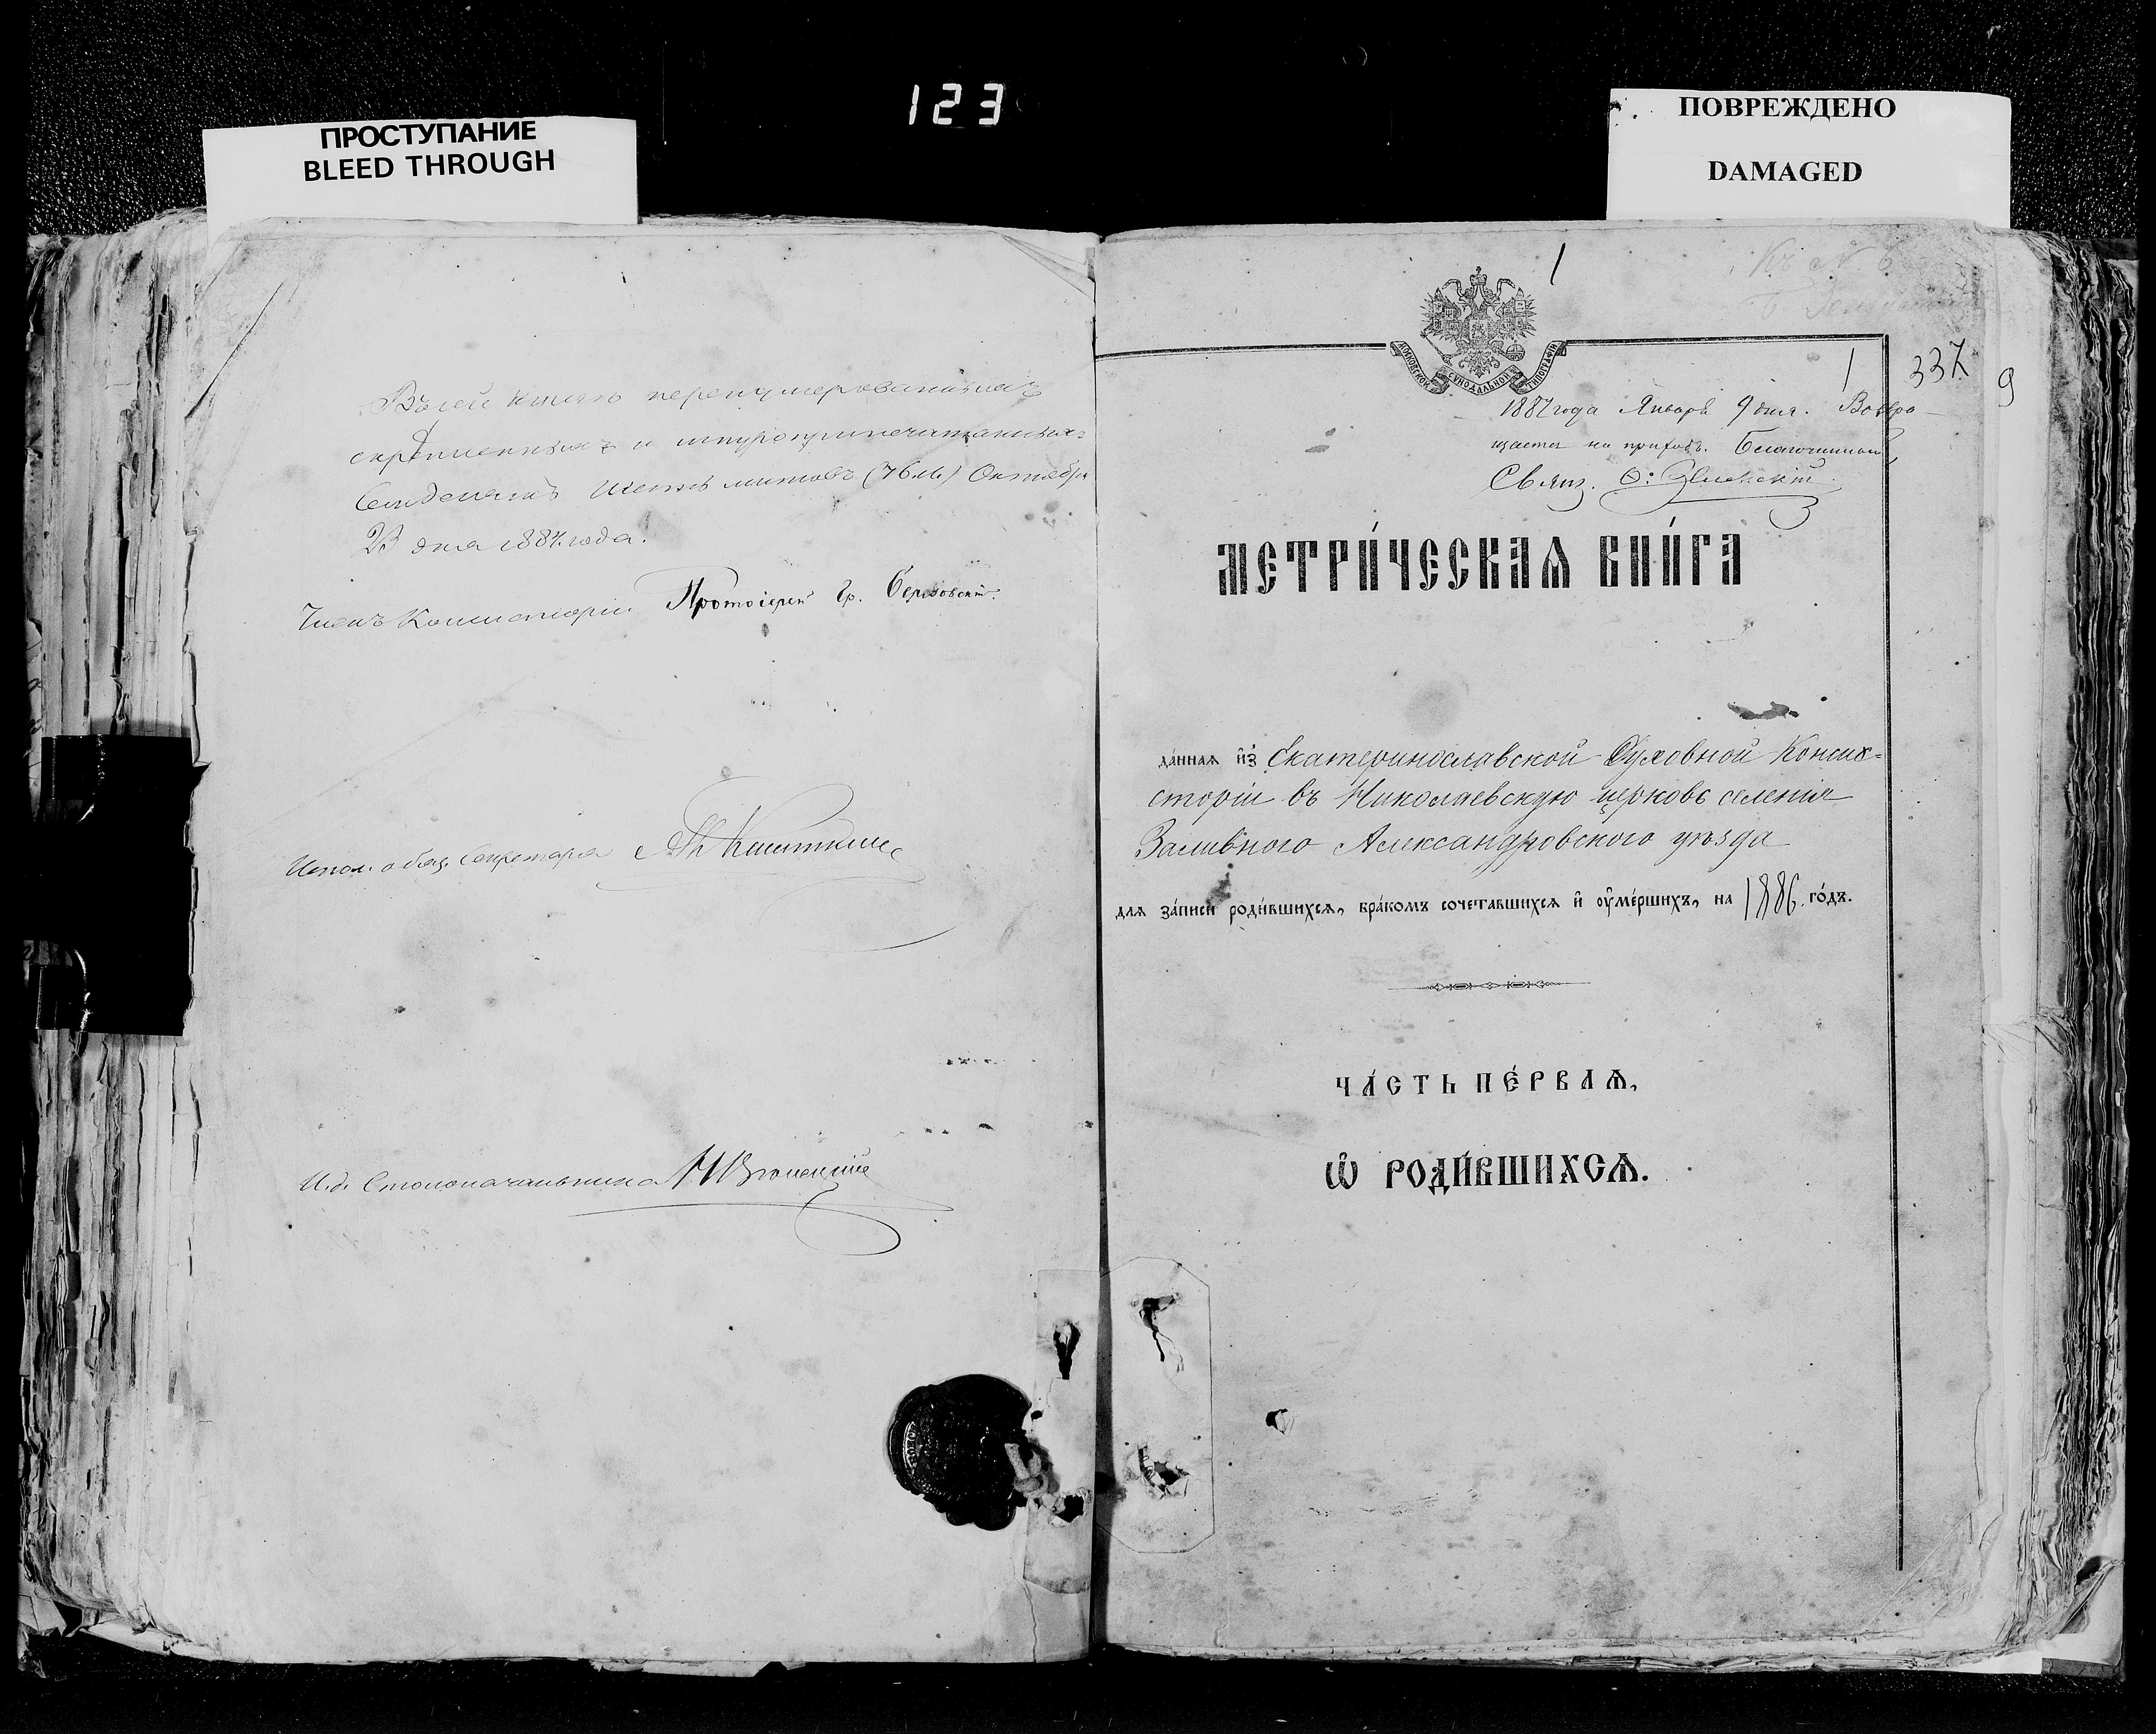 123
ПРОСТУПАНИЕ
BLEED THROUGH
ПОВРЕЖДЕНО
DAMAGED
Въ сей книгѣ перенумерованныхъ
скрѣпленныхъ и шнуроприпечатанныхъ
Семдесятъ шесть листовъ (76 л.) Октября
23 дня 188 года.
Членъ Консисторіи Протоіерей Гр.
Испол. обяз. Секретаря
И. д. Столоначальника
1
МОСКОВСКОЙ СУНОДАЛЬНОЙ ТИПОГРАФІИ
Къ № 6
1
337
9
1887 года Января 9 дня. Возвра-
щается на приходъ. Благочинный
Свящ.
МЕТРИ́ЧЕСКАѦ КНИ́ГА
да́ннаѧ и҆з̾ Екатеринославской Духовной Консис=
сторіи въ Николаевскую церковь селенія
Заливного Александровского уѣзда
длѧ за́писи роди́вшихсѧ, бра́комъ сочетавшихсѧ и҆ ᲂу҆ме́ршихъ, на 1886. го́дъ.
ЧА́СТЬ ПЕ́РВАѦ,
Ѽ РОДИ́ВШИХСѦ.